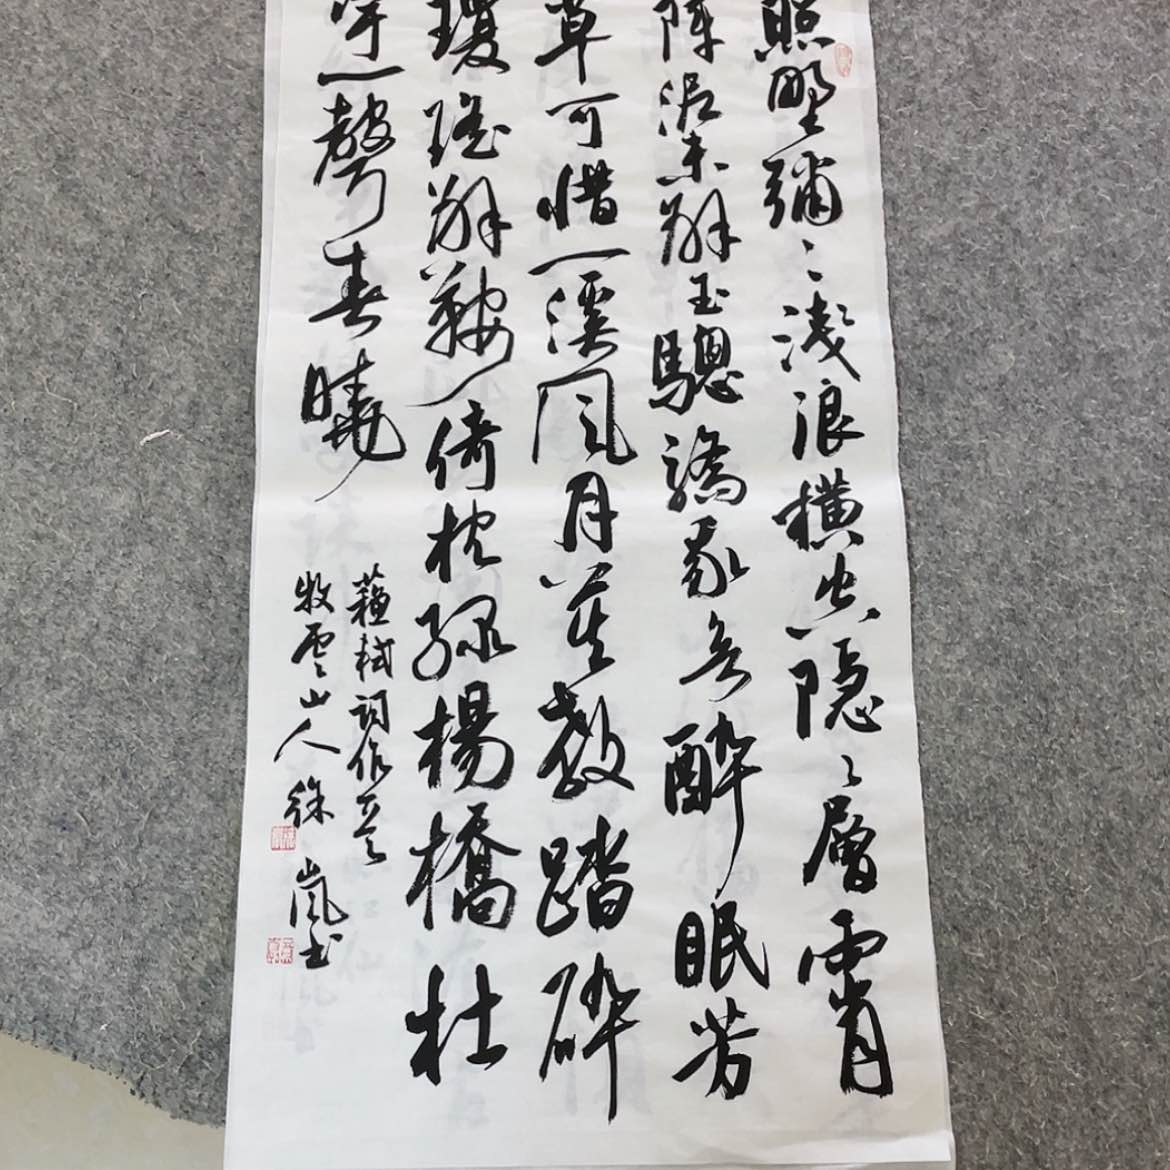 照野彌彌淺浪橫空隱隱層霄
障泥未解玉驄驕我欲醉眠芳
草可惜一溪風月莫教踏碎
瓊瑤解鞍倚枕綠楊橋杜
宇一聲春曉
蘇軾詞作
牧雲山人徐嵐书